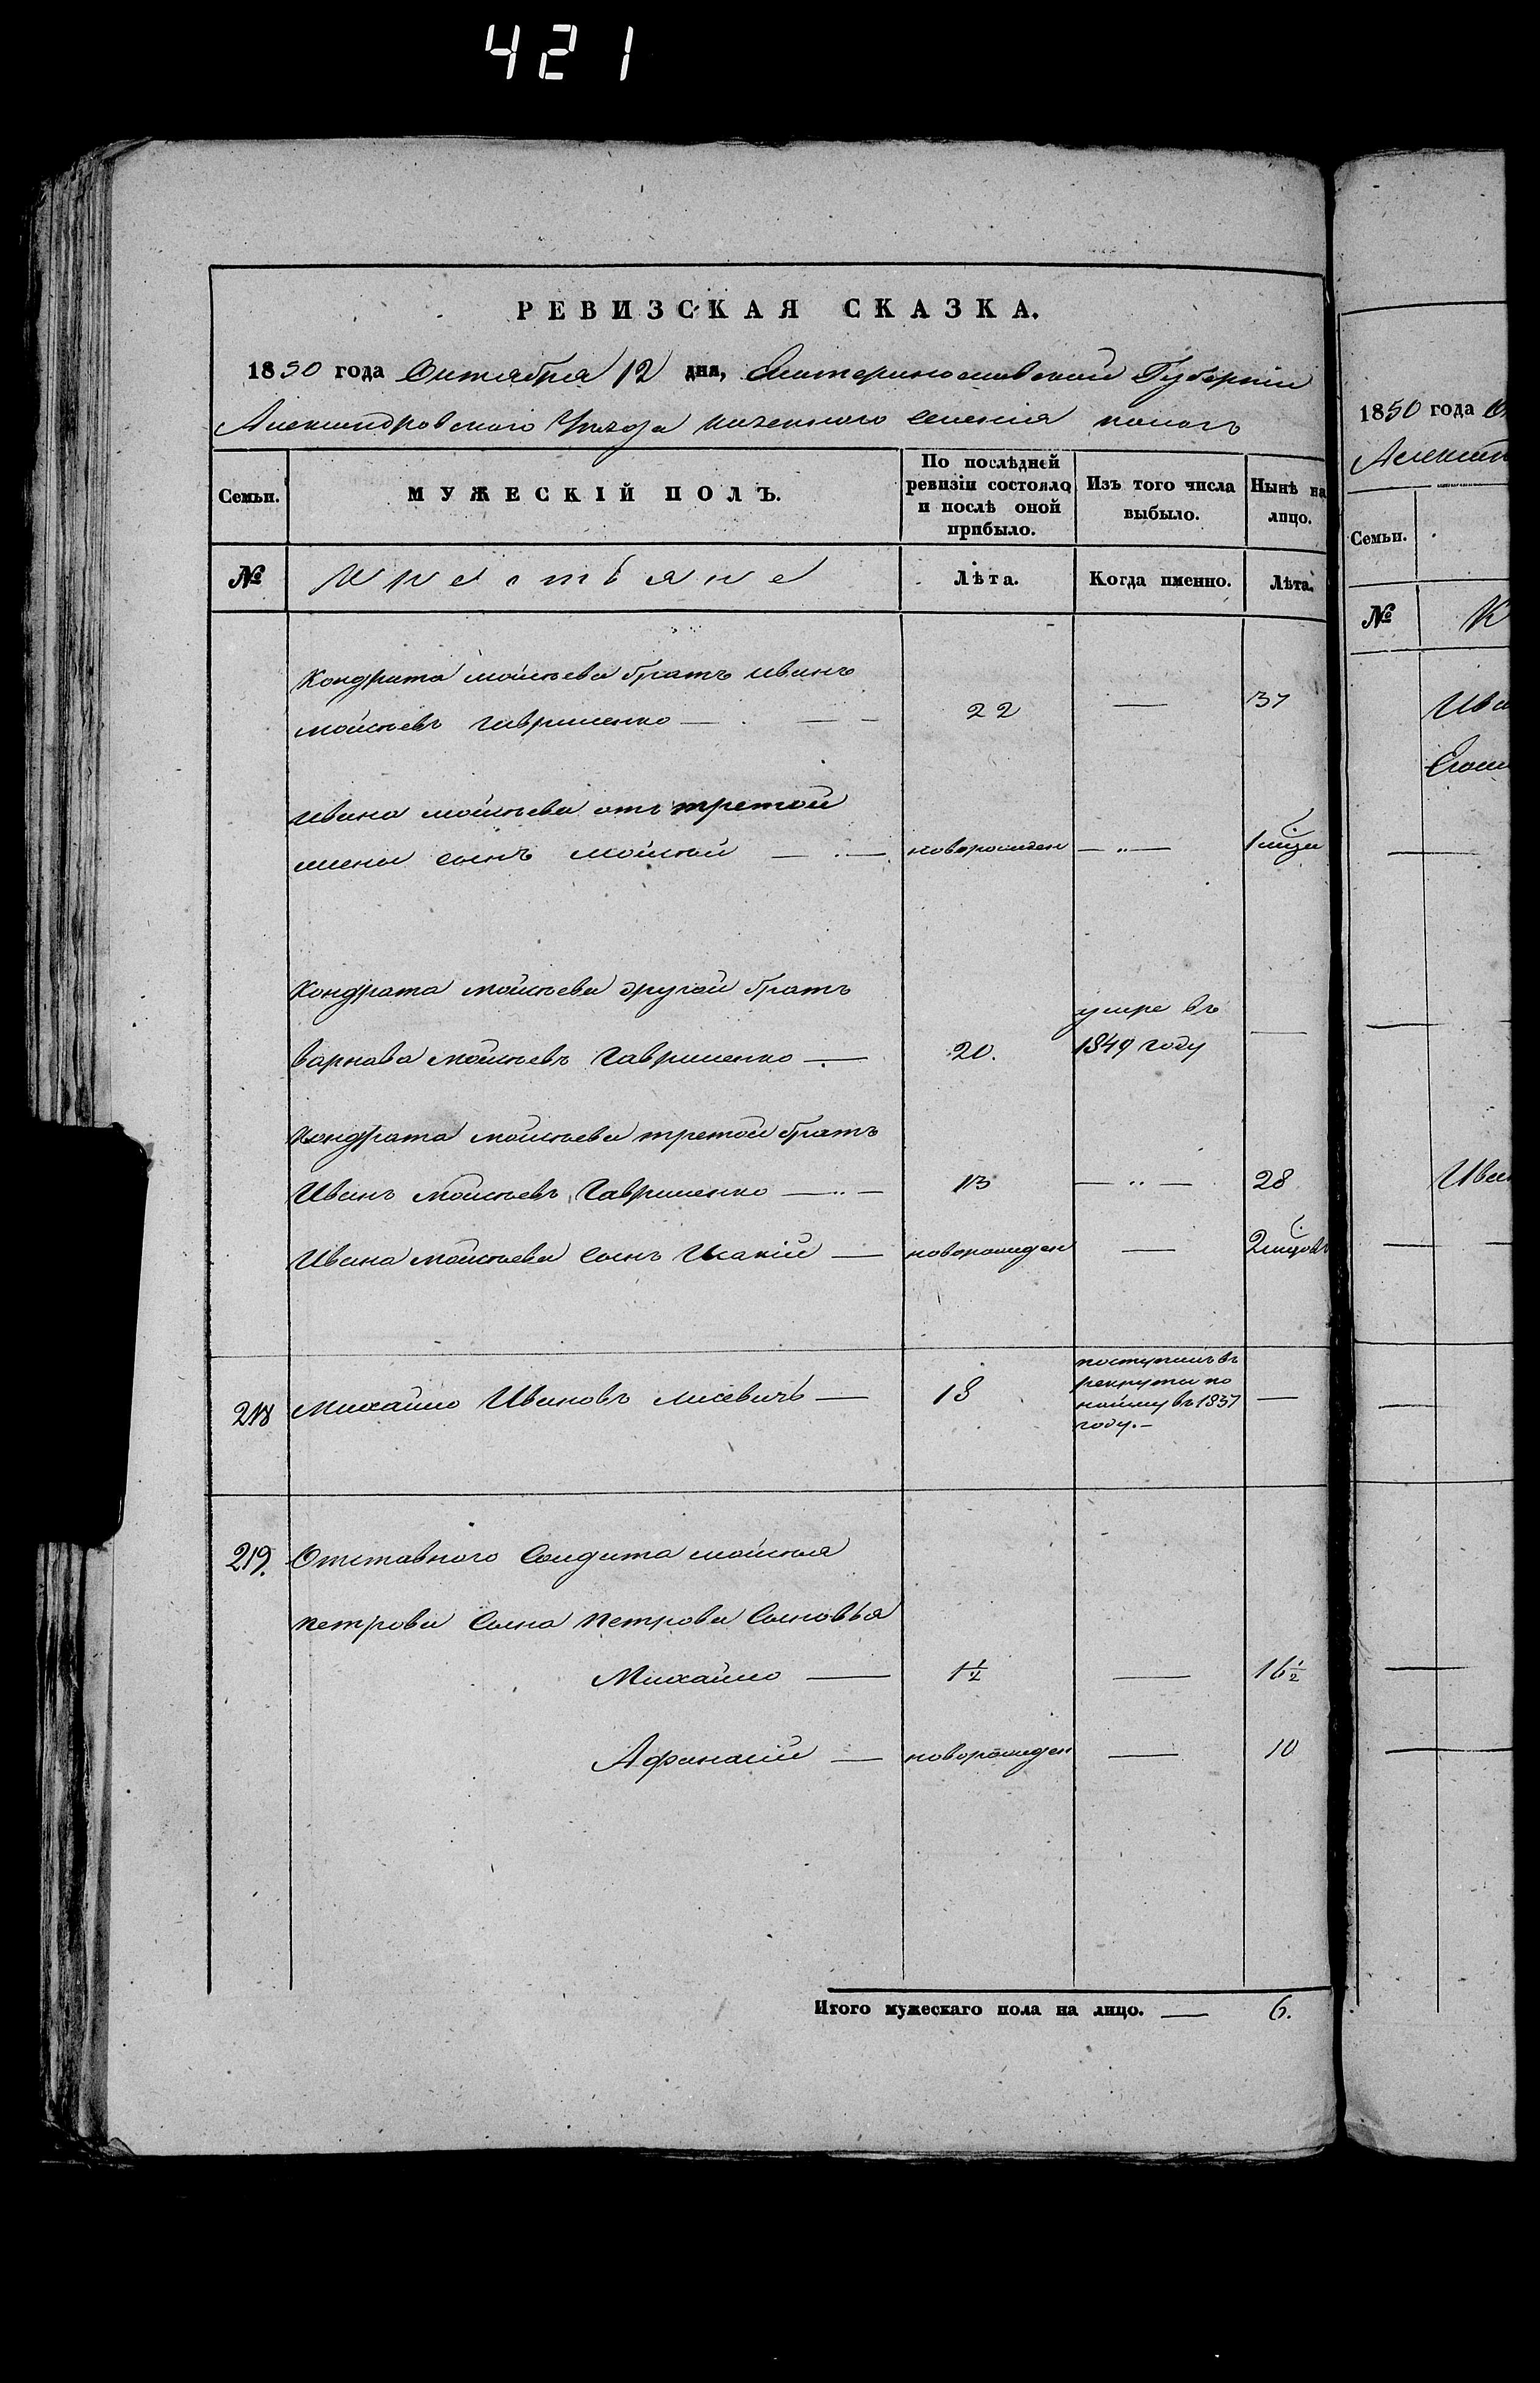 421
РЕВИЗСКАЯ СКАЗКА.
1850 года Октября 12 дня, Екатеринославской Губерніи
Александровскаго Уѣзда казенного селенія пологъ
Семьи. МУЖЕСКІЙ ПОЛЪ. По послѣдней ревизіи состояло и послѣ оной прибыло. Изъ того числа выбыло. Нынѣ на лицо.
№ Крестьяне Лѣта. Когда именно. Лѣта.
Кондрата мойсѣева братъ иванъ
мойсѣевъ гавриленко — 22 — 37
ивана мойсѣева отъ третой
жены сынъ мойсѣй — новорожден — 1
Кондрата мойсѣева другой братъ
умре въ
варнава мойсѣевъ Гавриленко — 20. 1849 году —
Кондрата мойсѣева третой братъ
Иванъ мойсѣевъ Гавриленко — 13 — 28
Ивана мойсѣева сынъ Исакій — новорожден — 2
218 Михайло Ивановъ лисевичъ — 18 —
поступилъ въ
рекруты по
найму въ 1837
году. —
219. Отставного Солдата мойсѣя
петрова сына петрова сыновья
Михайло — 1½ — 16½
Афанасій — новорожден — 10
Итого мужескаго пола на лицо. — 6.
1850 года
Семьи.
№ К